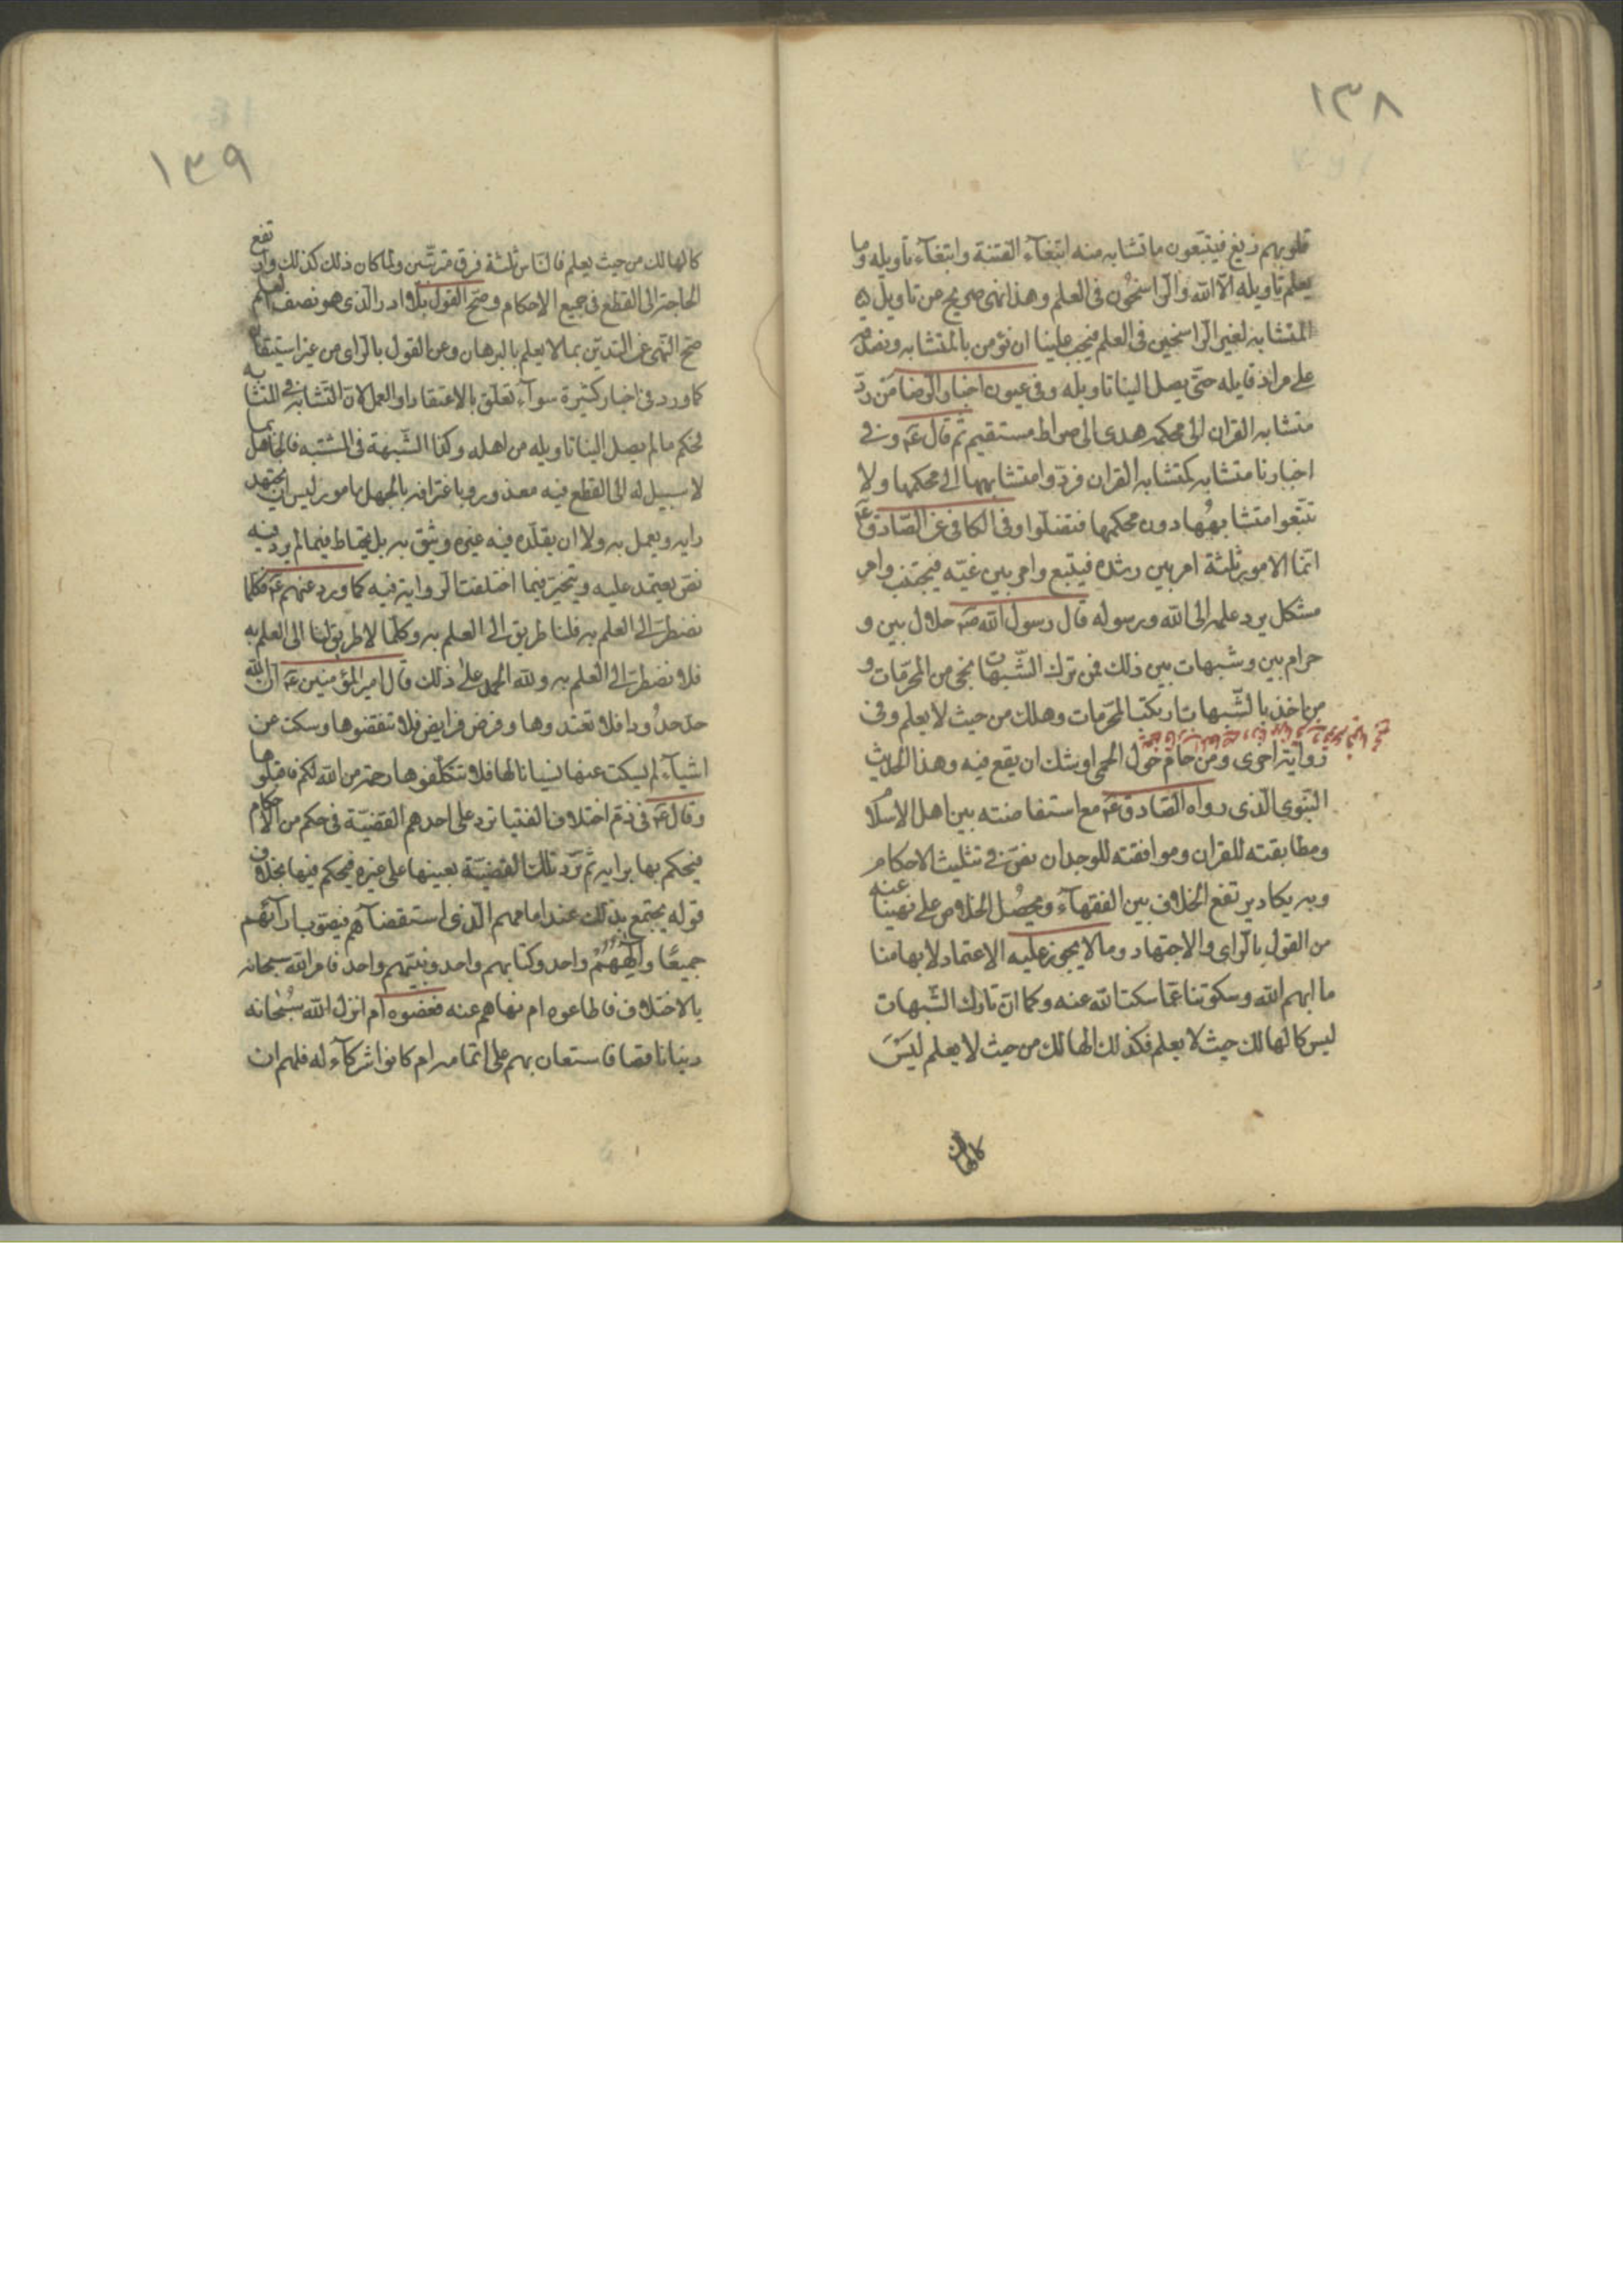 ١٣٨
قلوبهم زيغ فيتبعون ما تشابه منه ابتغآء الفتنة وابتغآء تأويله وما
يعلم تأويله الّا الله والرّاسخون فى العلم وهذا نهى صريح من تاويل
المتشابه لغير الراسخين فى العلم فيجب علينا ان نؤمن بالمتشابه
على مراد قايله حتّى يصل الينا تاويله وفى عيون اخبار الرّضا من ردّ
متشابه القران الى محكمه هدى الى صراط مستقيم ثم قال عَ وفي
اخبارنا متشابه كمتشابه القران فردّوا متشابهها الى محكمها ولا
تتّبعوا متشابهها دون محكمها فتضلّوا وفى الكافى عن الصّادق عَ
انّما الامور ثلثة امر بين رشده فيتبع وامر بين غيّه فيجتنب وامر
مشكل يرد علمه الى الله ورسوله قال رسول الله صَ حلال بين و
حرام بين وشبهات بين ذلك فمن ترك الشّبهات نجى من المحرّمات و
من اخذ بالشّبهات اركتب المحرّمات وهلك من حيث لا يعلم وفى
رواية اخرى ومن حام حول الحمى اوشك ان يقع فيه وهذا الحديث
النّبوي الّذى رواه الصّادق عَ مع استفاضته بين اهل الاسلام
ومطابقته للقران وموافقته للوجدان نصّ في تثليث الاحكام
وبه يكاد يرتفع الخلاف بين الفقهآء ويحصُل الخلاص على نهينا عنه
من القول بالرّاى والاجتهاد وما لا يجوز عليه الاعتماد لابهامنا
ما ابهم الله وسكوتنا عمّا سكت الله عنه وكما انّ تارك الشّبهات
ليس كالهالك حيث لا يعلم فكذلك الهالك من حيث لا يعلم ليسَ
كالهالك
١٣٩
كالهالك من حيث يعلم فالنّاس ثلثة فرق مترتّبين ولمّا كان ذلك كذلك وارتفع
الحاجة الى القطع فى جميع الاحكام وصحّ القول بلا ادرى الّذى هو نصف العلم
صحّ النّهى عن التديّن بما لا يعلم بالبرهان وعن القول بالرّاى من غير استيقان
كما ورد فى اخبار كثيرة سوآء تعلّق بالاعتقاد او العمل لانّ التّشابه في المتشابه
محكم ما لم يصل الينا تاويله من اهله وكذا الشّبهة فى المشتبه فالجاهل بما
لا سبيل له الى القطع فيه معذور وباعترافه بالجهل مامور ليس ان يجتهد
رايه ويعمل به ولا ان يقلّده فيه غيره ويثق به بل يحتاط فيما لم يرد فيه
نصّ يعتمد عليه ويتخيّر فيما اختلفت الرّواية فيه كما ورد عنهم عَ فكلّما
نضطرّ الى العلم به فلنا طريق الى العلم به وكلّما لا طريق لنا الى العلم به
فلا نضطرّ الى العلم به ولله الحمد على ذلك قال امير المؤمنين عَ انّ الله
حدّ حدُودا فلا تعتدوها وفرض فرايض فلا تنقضوها وسكت عن
اشيآء لم يسكت عنها نسيانا لها فلا تتكلّفوها رحمة من الله لكم فاقبلوها
وقال عَ فى ذمّ اختلاف الفتيا ترد على احدهم القضيّة فى حكم من الاحكام
فيحكم بها برايه ثم ترد تلك القضيّة بعينها على غيره فيحكم فيها بخلاف
قوله يجتمع بذلك عند امامهم الّذى استقضآهم فيصوّب ارآئهم
جميعًا والٰهُهُمْ واحد وكتابهم واحد ونبيّهم واحد فامر الله سبحانه
بالاختلاف فاطاعوه ام نهاهم عنه فعصوه ام انزل الله سُبْحانه
دينا ناقصا فاستعان بهم على اتمامه ام كانوا شركآء له فلهم ان